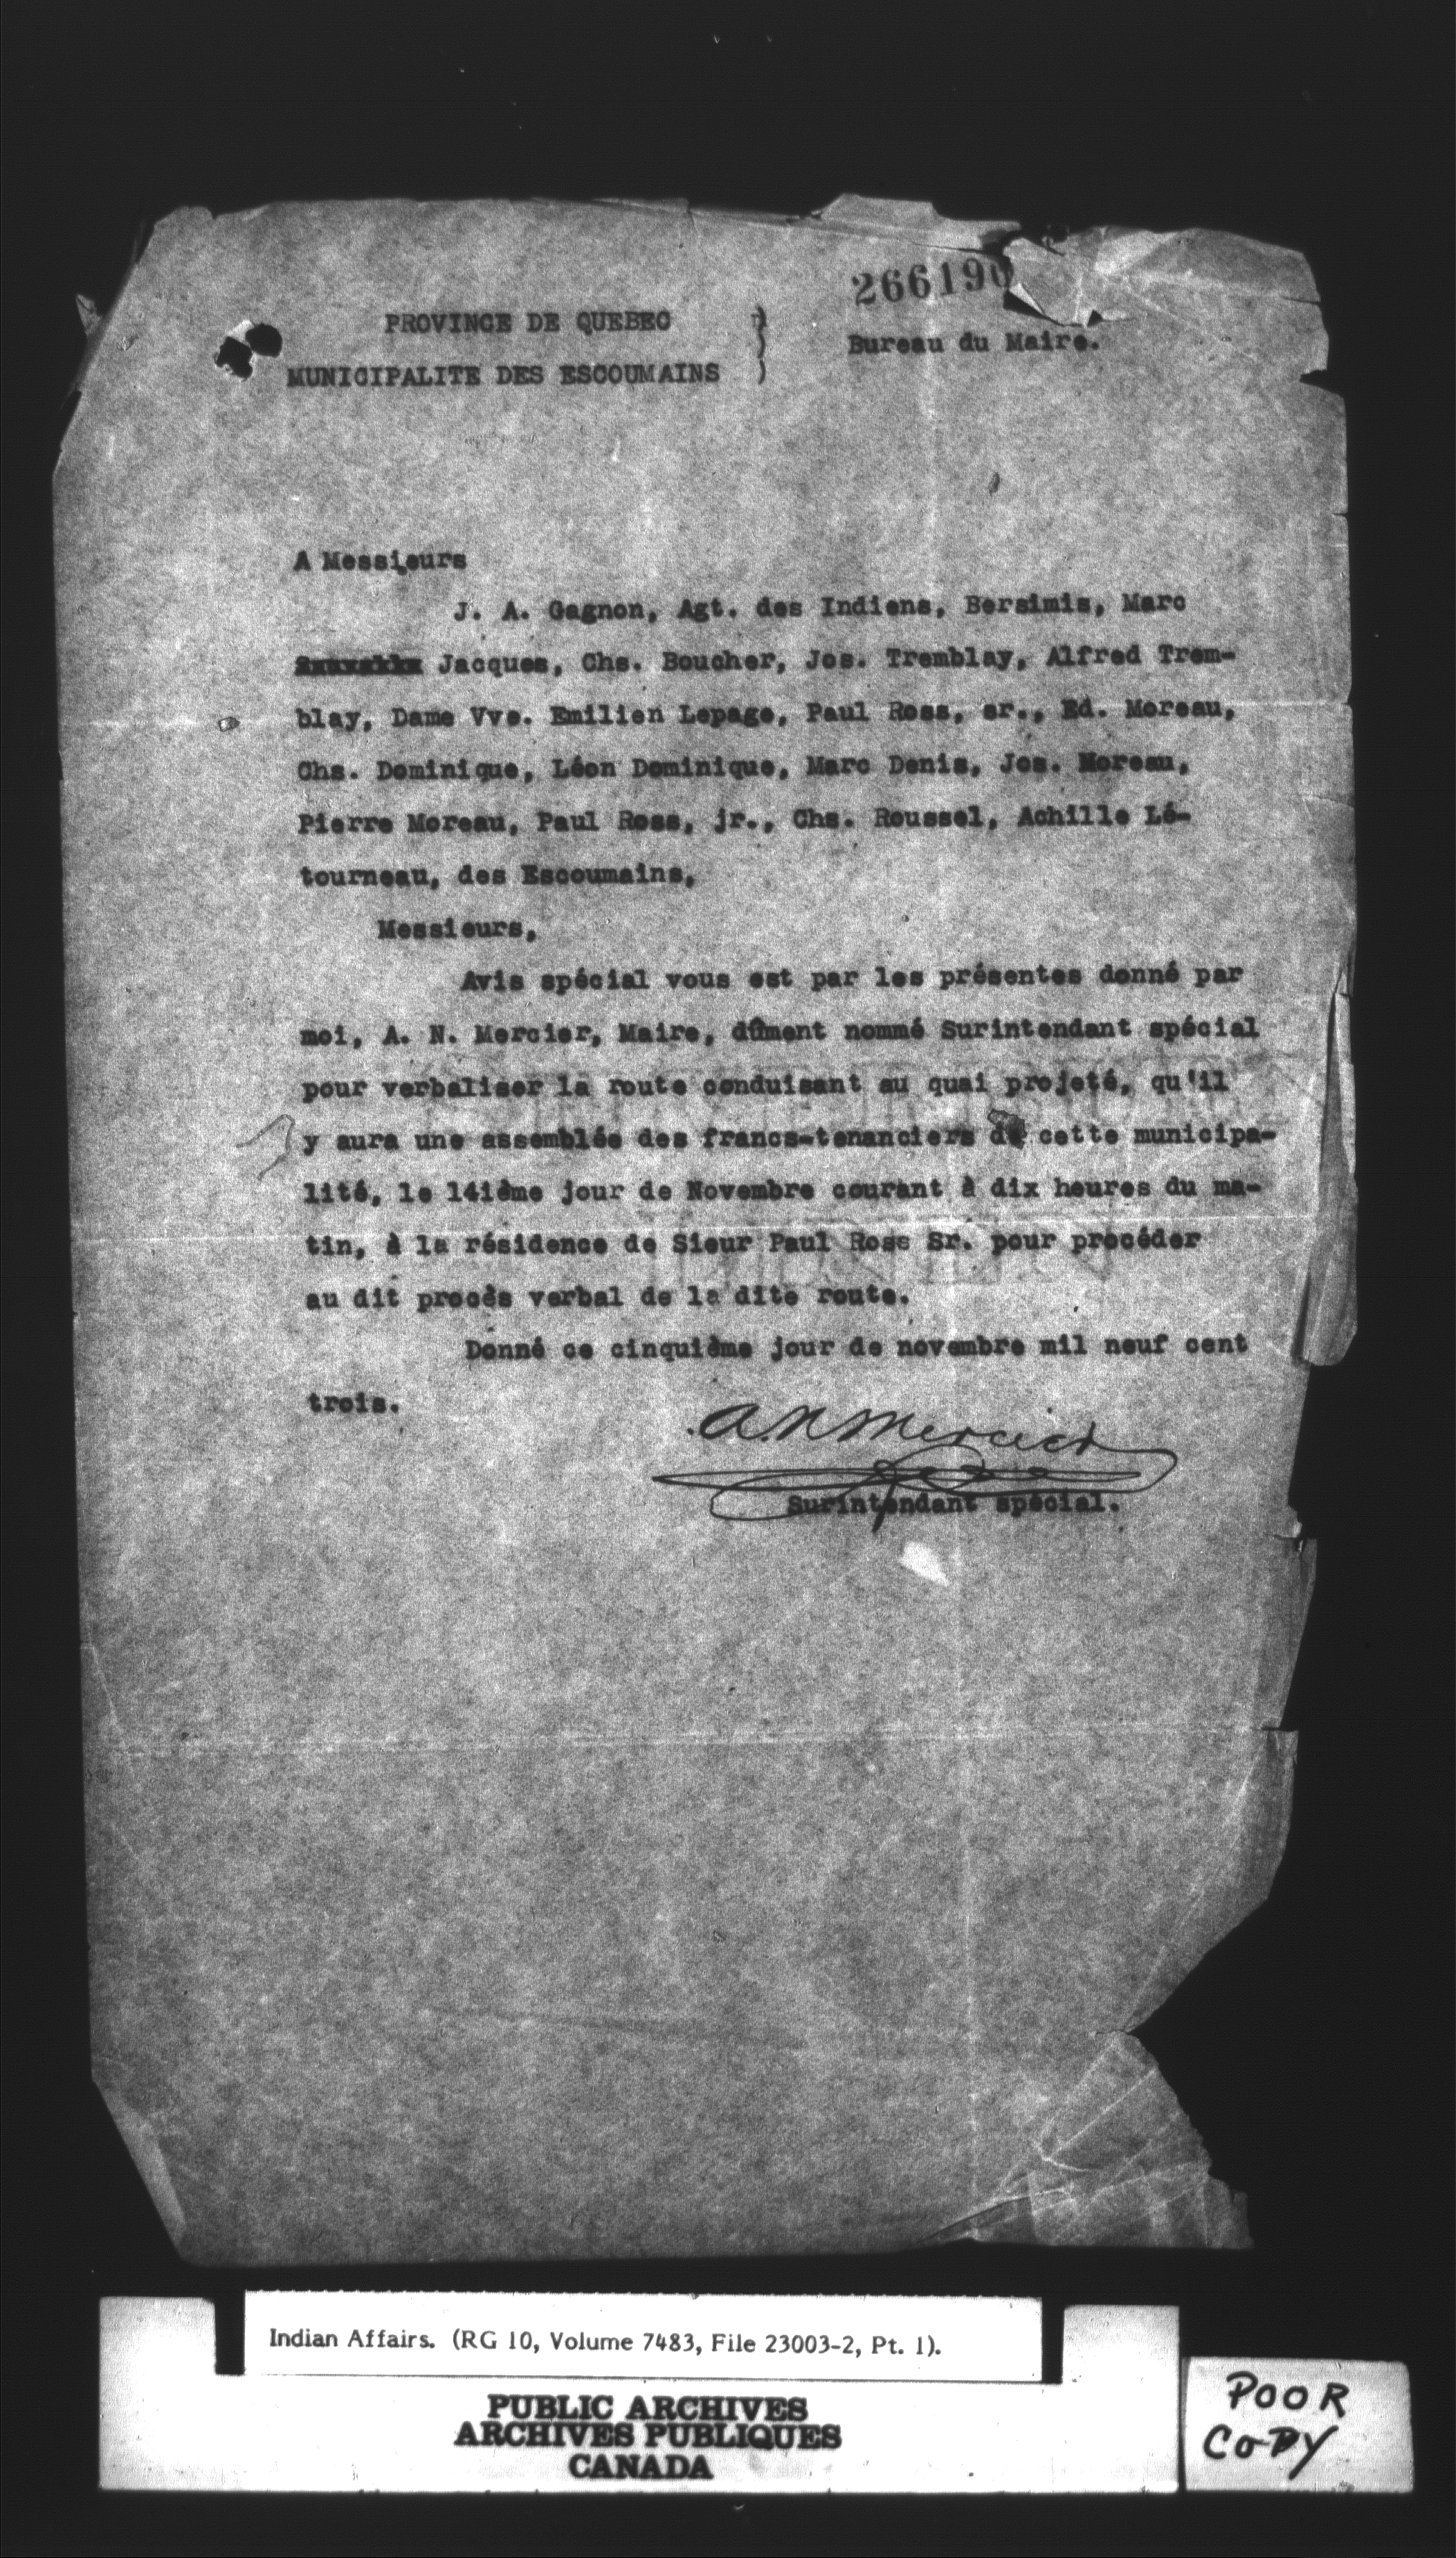 266190
PROVINCE DE QUEBEC
MUNICIPALITE DES ESCOUMAINS
Bureau du Maire.
A Messieurs
J. A. Gagnon, Agt. des Indiens, Bersimis, Marc
Jacques, Chs. Boucher, Jos. Tremblay, Alfred Trem-
blay, Dame Vve. Emilien Lepage, Paul Ross, sr., Ed. Moreau,
Chs. Dominique, Léon Dominique, Marc Denis, Jos. Moreau,
Pierre Moreau, Paul Ross, jr., Chs. Roussel, Achille Lé-
tourneau, des Escoumains,
Messieurs,
Avis spécial vous est par les présentes donné par
moi, A. N. Mercier, Maire, dûment nommé Surintendant spécial
pour verbaliser la route conduisant au quai projeté, qu'il
y aura une assemblée des francs-tenanciers de cette municipa-
lité, le 14ième jour de Novembre courant à dix heures du ma-
tin, à la résidence de Sieur Paul Ross Sr. pour procéder
au dit procès verbal de la dite route.
Donné ce cinquième jour de novembre mil neuf cent
trois.
A. N. Mercier
Surintendant spécial.
Indian Affairs. (RG 10, Volume 7483, File 23003-2, Pt. 1).
PUBLIC ARCHIVES
ARCHIVES PUBLIQUES
CANADA
POOR
COPY